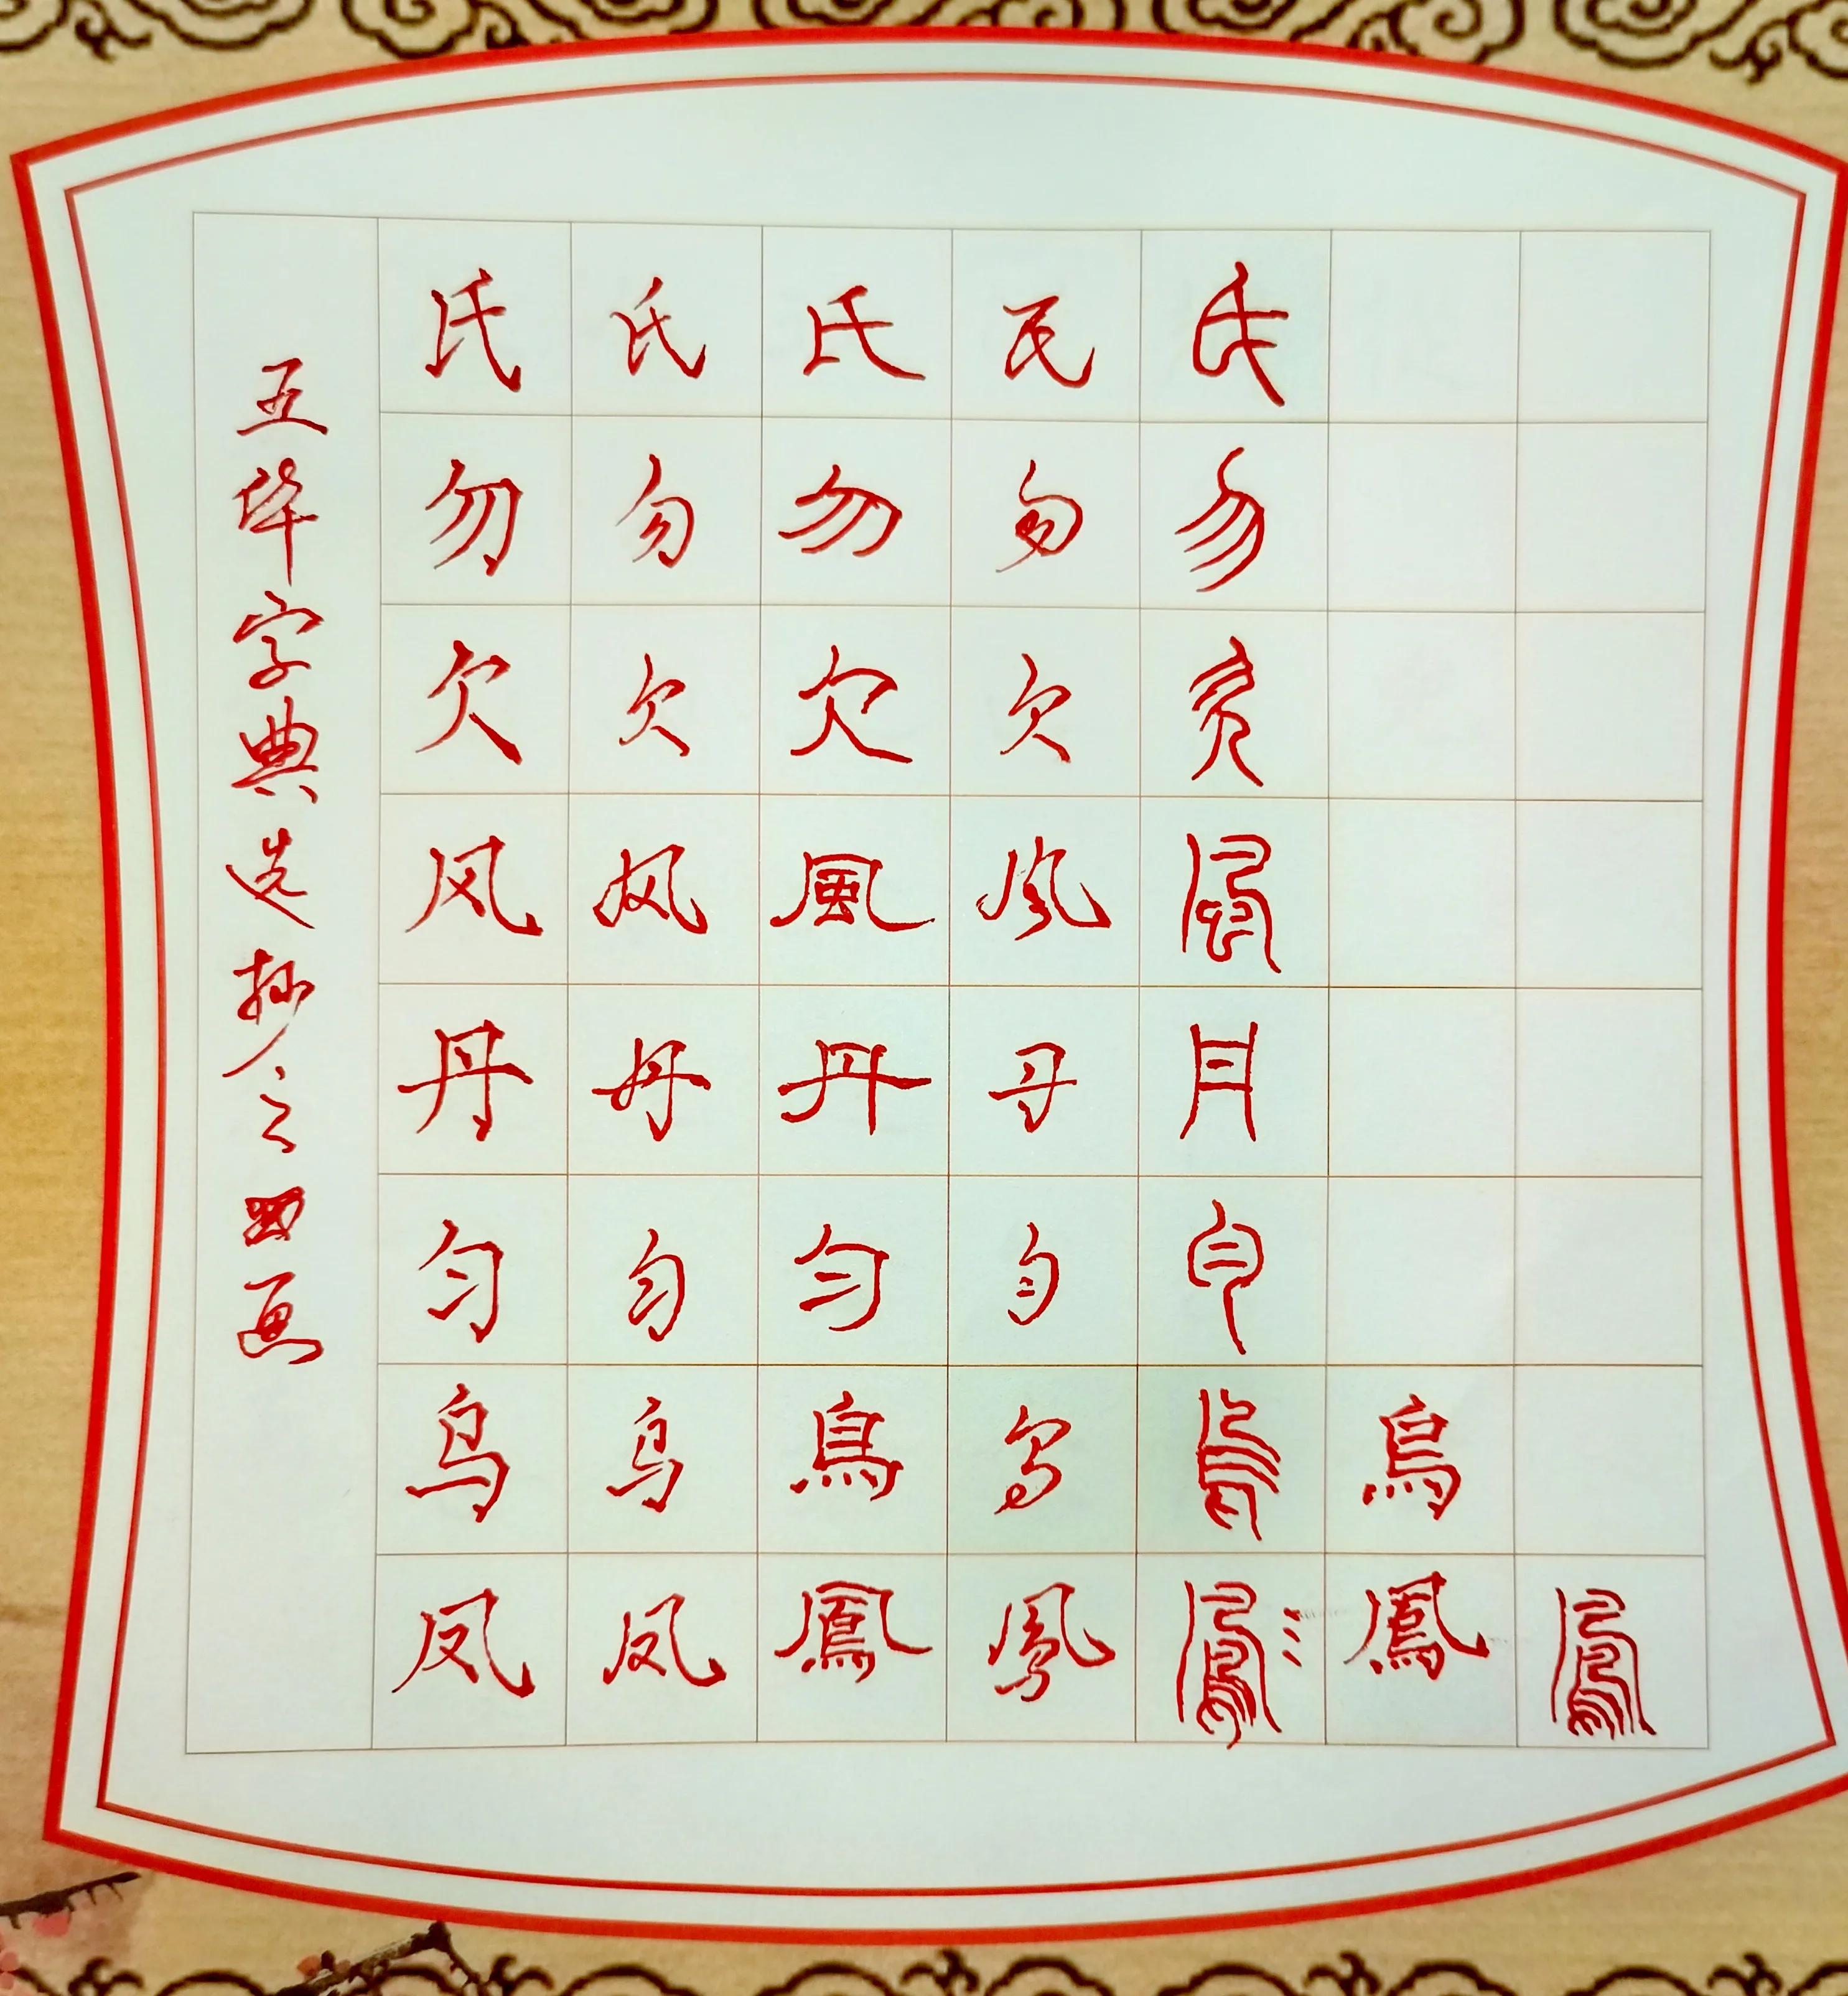 五体字典选抄之四画
氏氏氏氏氏
勿勿勿勿勿
欠欠欠欠欠
风风風風風
丹丹丹丹丹
匀匀匀匀匀
乌乌烏烏烏烏
凤凤鳳鳳鳳鳳鳳